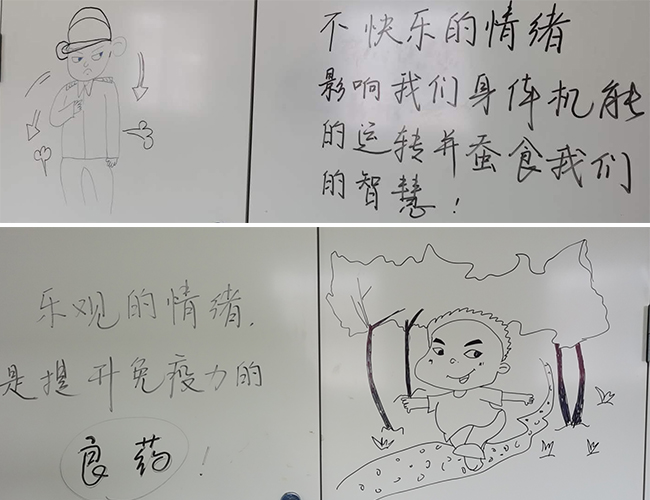 不快乐的情绪
影响我们身体机能
的运转并蚕食我们
的智慧！
乐观的情绪，
是提升免疫力的
良药！